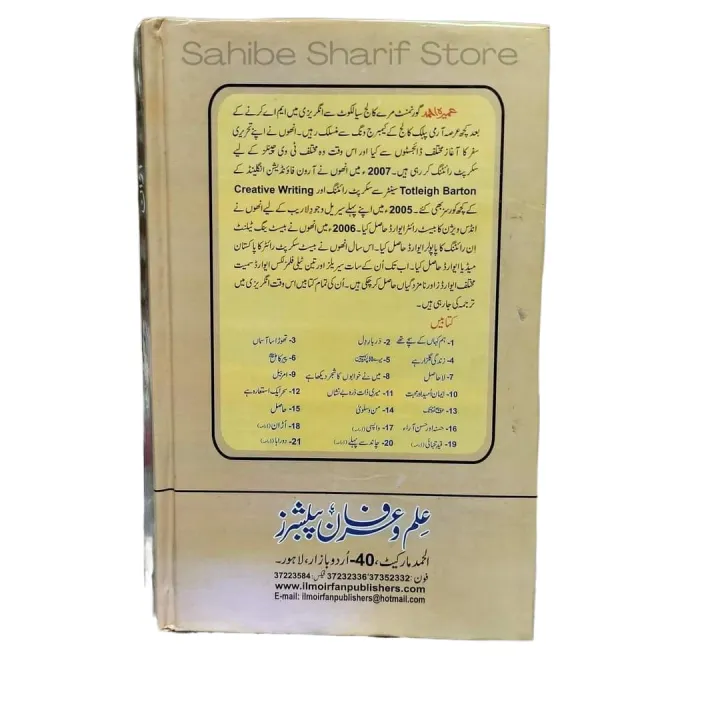 Sahibe Sharif Store
عمیرہ احمد گورنمنٹ مرے کالج سیالکوٹ سے انگریزی میں ایم اے کرنے کے
بعد کچھ عرصہ آرمی پبلک کالج کے کیمبرج ونگ سے منسلک رہیں۔ انھوں نے اپنے تحریری
سفر کا آغاز مختلف ڈائجسٹوں سے کیا اور اس وقت وہ مختلف ٹی وی چینلز کے لیے
سکرپٹ رائٹنگ کر رہی ہیں۔ 2007ء میں انھوں نے آرون فاؤنڈیشن انگلینڈ کے
Totleigh Barton سینٹر سے سکرپٹ رائٹنگ اور Creative Writing
کے کچھ کورسز بھی کئے۔ 2005ء میں اپنے پہلے سیریل وجودِ لاریب کے لیے انھوں نے
انڈس ویژن کا بیسٹ رائٹر ایوارڈ حاصل کیا۔ 2006ء میں انھوں نے بیسٹ ینگ ٹیلنٹ
ان رائٹنگ کا پاپولر ایوارڈ حاصل کیا۔ اس سال انھوں نے بیسٹ سکرپٹ رائٹر کا پاکستان
میڈیا ایوارڈ حاصل کیا۔ اب تک اُن کے سات سیریلز اور تین ٹیلی فلمز لکس ایوارڈ سمیت
مختلف ایوارڈز اور نامزدگیاں حاصل کر چکی ہیں۔ اُن کی تمام کتابیں اس وقت انگریزی میں
ترجمہ کی جا رہی ہیں۔
کتابیں
1- ہم کہاں کے سچے تھے 2- دربارِ دل 3- تھوڑا سا آسماں
4- زندگی گلزار ہے 5- 6- پیر کامل
7- لاحاصل 8- میں نے خوابوں کا شجر دیکھا ہے 9- امربیل
10- ایمان اُمید اور محبت 11- میری ذات ذرہ بے نشاں 12- سحر ایک استعارہ ہے
13- 14- من و سلویٰ 15- حاصل
16- حسنہ اور حسن آراء 17- واپسی 18- اُڑان
19- قیدِ تنہائی 20- چاند سے پہلے 21- دوراہا
علم و عرفان پبلشرز
الحمد مارکیٹ، 40-اُردو بازار، لاہور۔
فون: 37232336'37352332 فیکس: 37223584
www.ilmoirfanpublishers.com
E-mail: ilmoirfanpublishers@hotmail.com